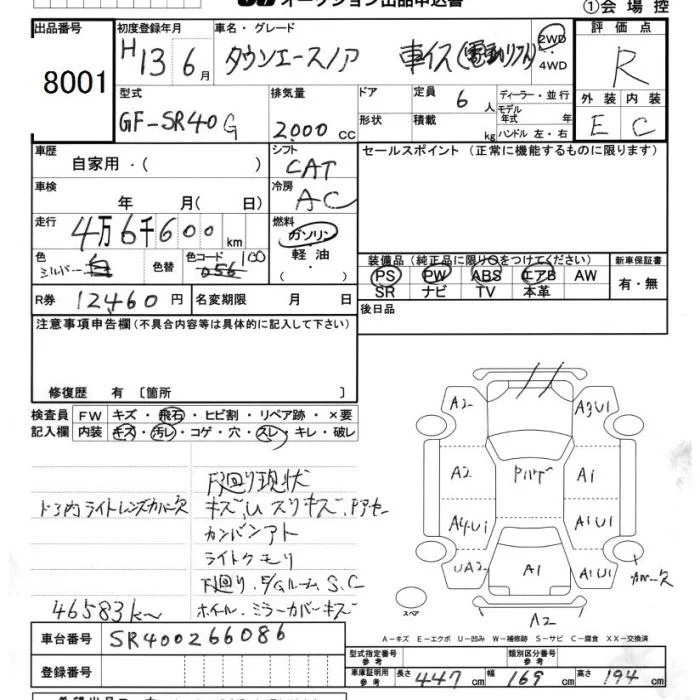 オークション出品申込書
①会場控
出品番号
8001
初度登録年月
H13 6月
車名・グレード
タウンエースノア 車イス(電動リフト)
2WD
4WD
評価点
R
型式
GF-SR40G
排気量
2000 CC
ドア
形状
定員 6 人
積載 kg
ディーラー・並行
モデル年式 年
ハンドル 左・右
外装 内装
E C
車歴
自家用・( )
シフト
CAT
セールスポイント (正常に機能するものに限ります)
車検
年 月( 日)
冷房
AC
走行
4万6千600 km
燃料
ガソリン
軽油
( ・ )
色
シルバー 白
色替
色コード 100
056
装備品 (純正品に限り○をつけてください)
新車保証書
PS PW ABS エアB AW
SR ナビ TV 本革
有・無
R券 12460 円
名変期限 月 日
後日品
注意事項申告欄 (不具合内容等は具体的に記入して下さい)
修復歴 有 〔箇所 〕
検査員記入欄
FW キズ・飛石・ヒビ割・リペア跡・×要
内装 キズ・汚レ・コゲ・穴・スレ・キレ・破レ
下廻り現状
ドア内ライトレンズカバー欠
キズ、U スリキズ、Pアセー
カンバンアト
ライトクモリ
下廻り、E/Gルーム S.C
46583k~
ホイール・ミラーカバーキズ
A2
A3U1
A2
A1
A4U1
A1U1
UA2
A1
A1U1
カバー欠
スペア
A2
A-キズ E-エクボ U-凹み W-補修跡 S-サビ C-腐食 XX-交換済
車台番号 SR400266086
型式指定番号
参考
類別区分番号
参考
登録番号
車庫証明用
参考
長さ 447 cm 幅 169 cm 高さ 194 cm